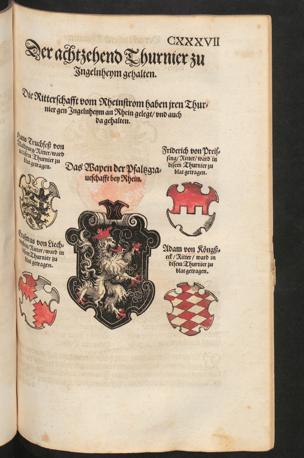 CXXXVII
Der achtzehend Thurnier zu
Ingelnheym gehalten.
Die Ritterschafft vom Rheinstrom haben jren Thur-
nier gen Ingelnheym an Rhein gelegt/ vnd auch
da gehalten.
Hans Truchseß von
Ritter/ ward
in disem Thurnier zu
blat getragen.
Das Wapen der Pfaltzgra-
ueschafft bey Rhein.
Friderich von Preis-
sing/ Ritter/ ward in
disem Thurnier zu
blat getragen.
von Liech-
Ritter/ ward in
disem Thurnier zu
blat getragen.
Adam von Köngß-
eck/ Ritter/ ward in
disem Thurnier zu
blat getragen.